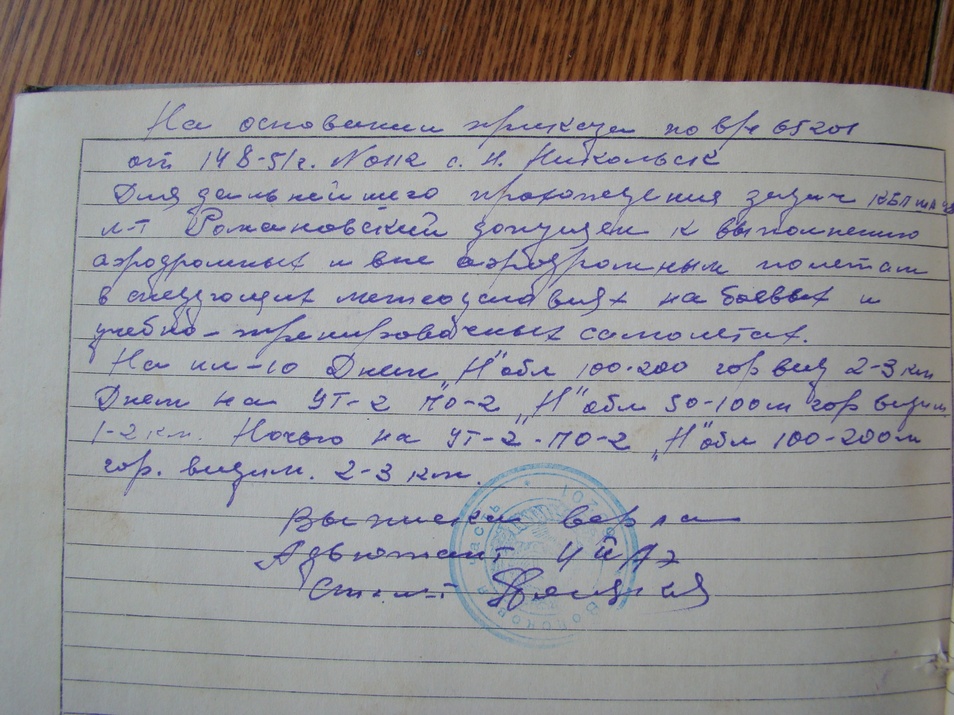 На основании приказа по в/ч 65201
от 14 8-51г. No112 с. Н. Никольск
Для дальнейшего прохождения задач КБП
л-т Романовский допущен к выполнению
аэродромных и вне аэродромным полетам
в следующих метеоусловиях на боевых и
учебно-тренировочных самолетах.
На ил-10 Днем „Н" обл 100-200 гор вид 2-3 км
Днем на УТ-2 ПО-2 „Н" обл 50-100м гор видим
1-2 км. Ночью на УТ-2-ПО-2 „Н" обл 100-200м
гор. видим. 2-3 км.
Выписка верна
Адъютант АЭ
Ст. л-т
часть